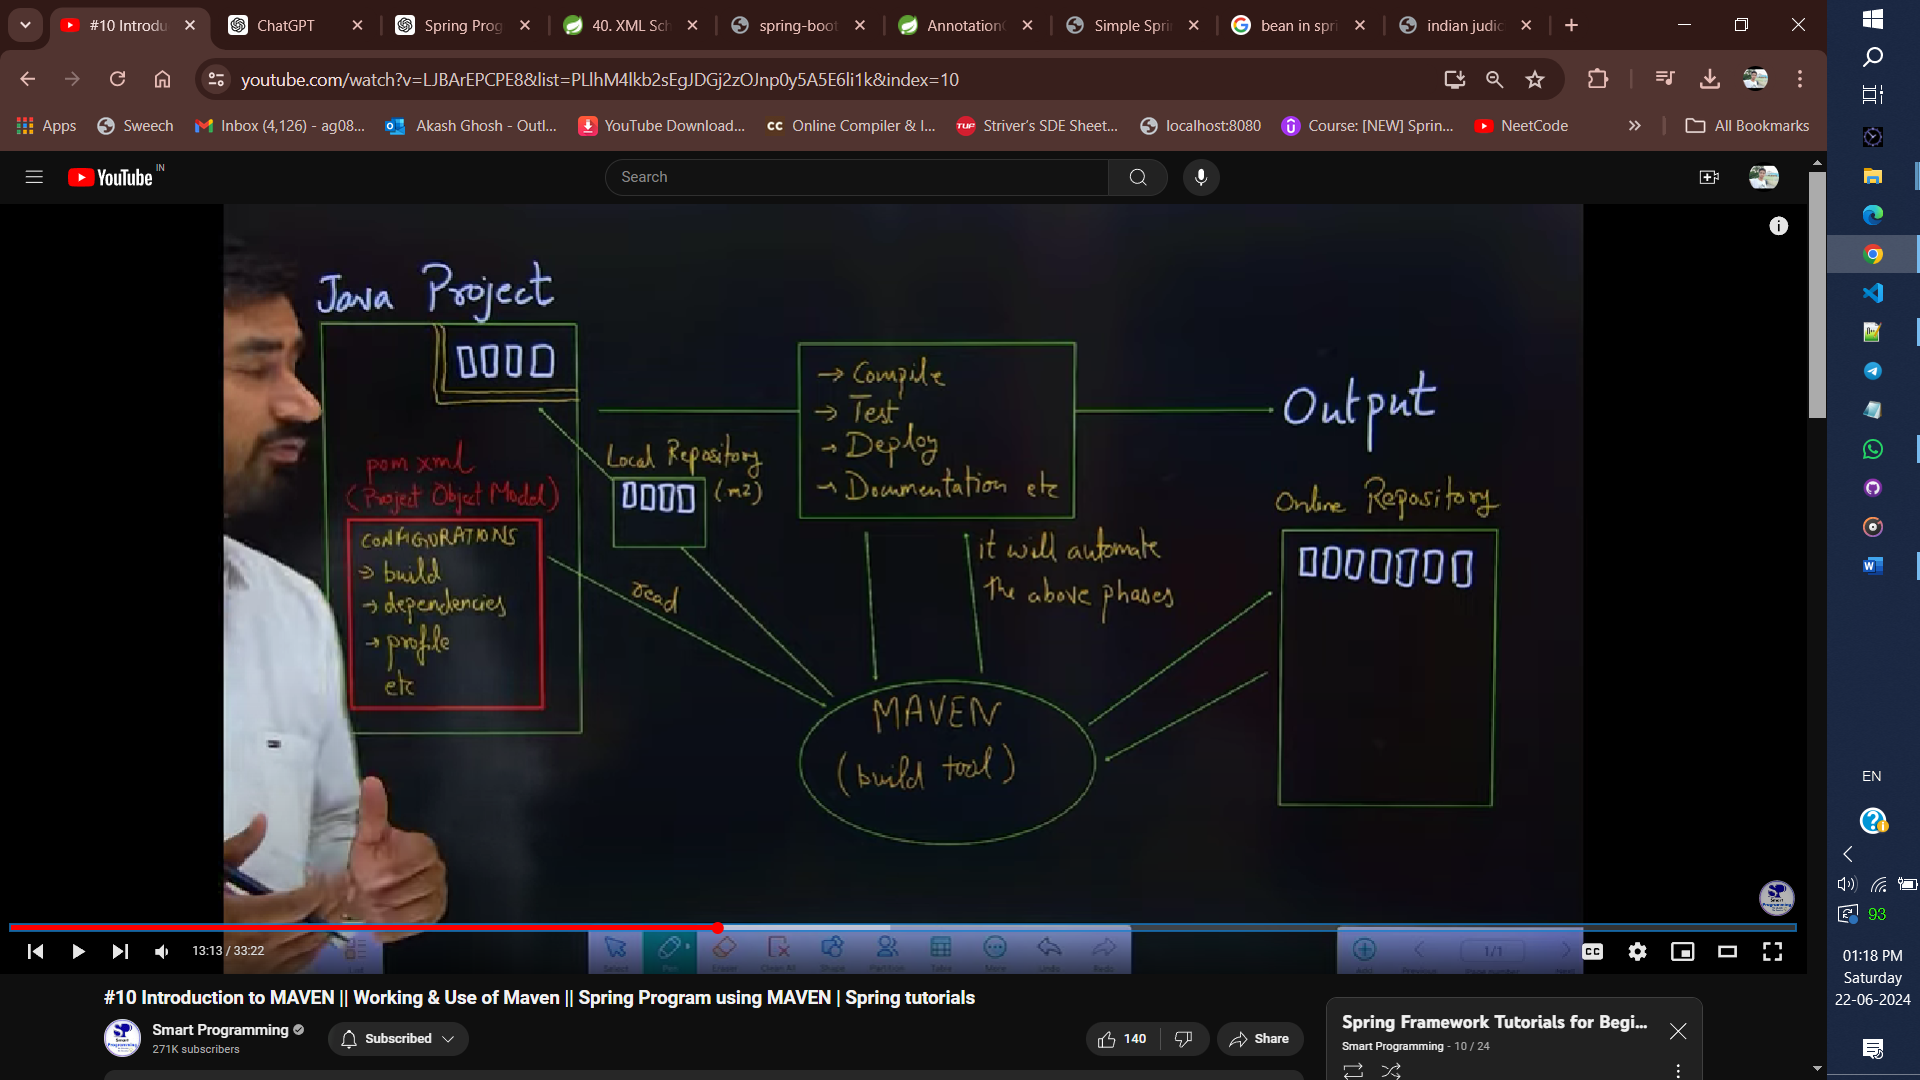 #10 Introdu
ChatGPT
Spring Prog
40. XML Sch
spring-boot
Annotation
Simple Spri
bean in spri
indian judic
youtube.com/watch?v=LJBArEPCPE8&list=PLlhM4lkb2sEgJDGj2zOJnp0y5A5E6li1k&index=10
Apps
Sweech
Inbox (4,126) - ag08...
Akash Ghosh - Outl...
YouTube Download...
CC Online Compiler & I...
TUF Striver's SDE Sheet...
localhost:8080
Course: [NEW] Sprin...
NeetCode
All Bookmarks
YouTube IN
Search
Java Project
pom xml
(Project Object Model)
CONFIGURATIONS
→ build
→ dependencies
→ profile
etc
Local Repository
(.m2)
read
→ Compile
→ Test
→ Deploy
→ Documentation etc
it will automate
the above phases
MAVEN
(build tool)
Output
Online Repository
Select
Pen
Eraser
Clean All
Shape
Partition
Table
More
Undo
Redo
Add
Previous
1/1
Page number
Next
13:13 / 33:22
CC
#10 Introduction to MAVEN || Working & Use of Maven || Spring Program using MAVEN | Spring tutorials
Smart Programming
271K subscribers
Subscribed
140
Share
Spring Framework Tutorials for Begi...
Smart Programming - 10 / 24
EN
93
01:18 PM
Saturday
22-06-2024